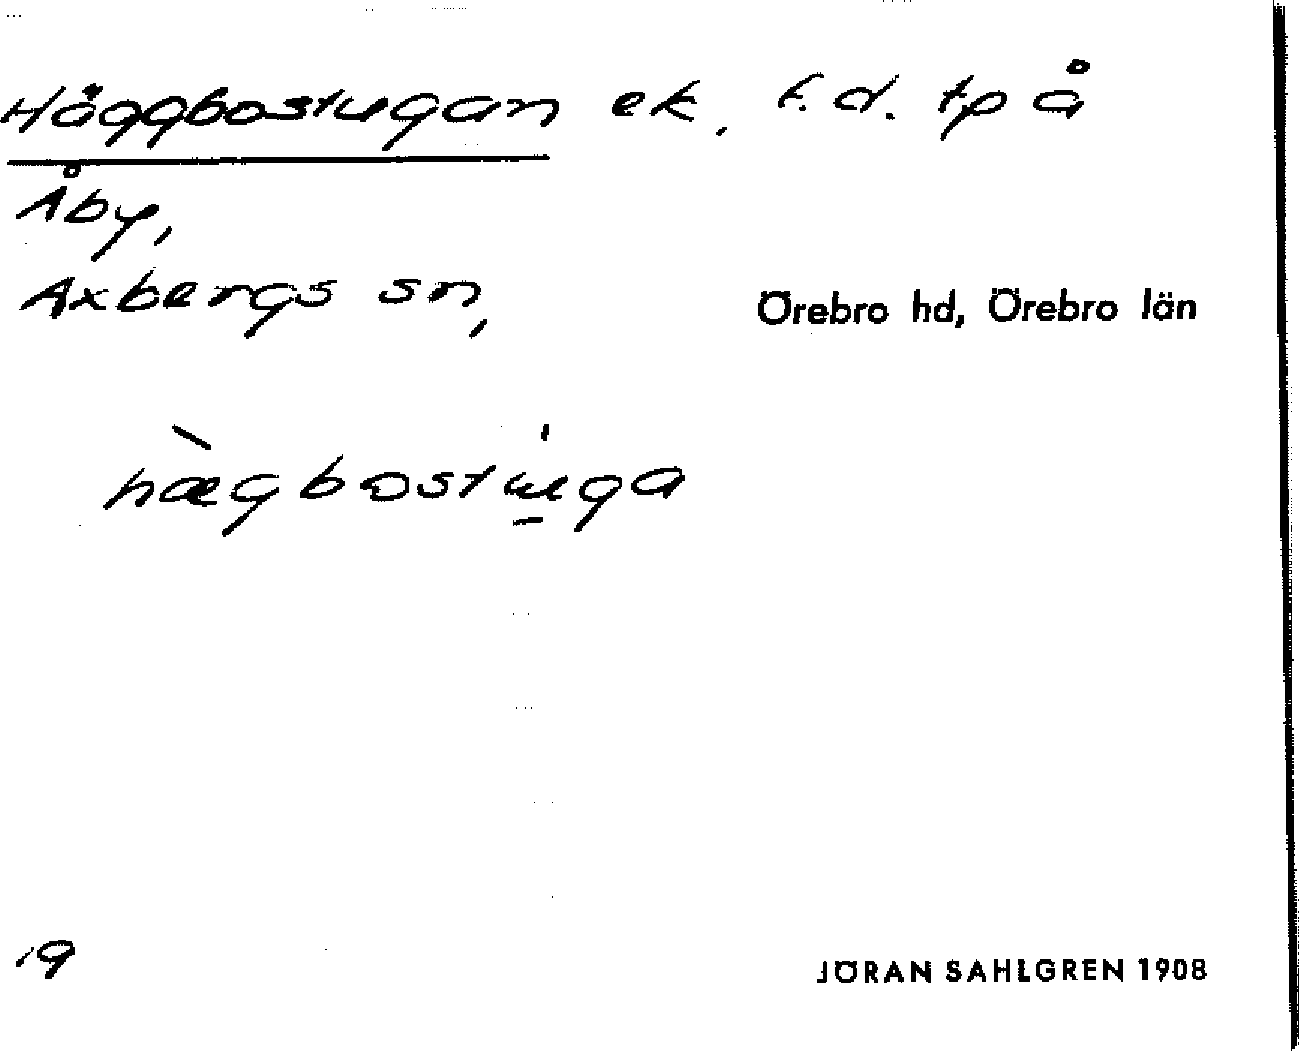 Häggbostugan ek. f.d. tp å
Åby,
Axbergs sn,
Örebro hd, Örebro län
hægbostuga
19
JÖRAN SAHLGREN 1908